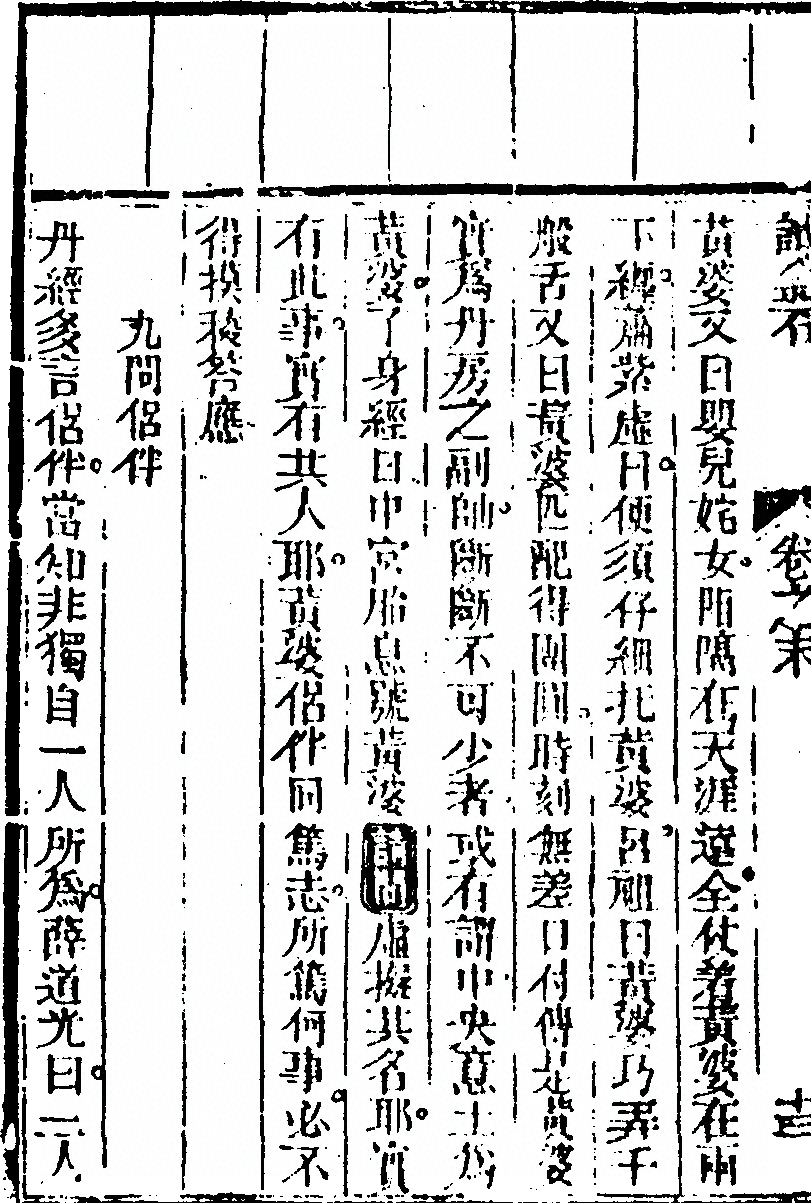 卷
黃婆又曰嬰兒姹女陌隔在天涯遠全仗着黃婆在兩
下纏蕭紫虛曰便須仔細托黃婆呂祖曰黃婆巧弄千
般舌又曰黃婆匹配得團圓時刻無差口付傳是黃婆
實爲丹房之副帥斷斷不可少者或有謂中央意土爲
黃婆了身經曰中宮胎息號黃婆虛擬其名耶實
有此事實有其人耶黃婆侶伴同篤志所篤何事必不
得摸稜答應
九問侶伴
丹經多言侶伴當知非獨自一人所爲薛道光曰二人